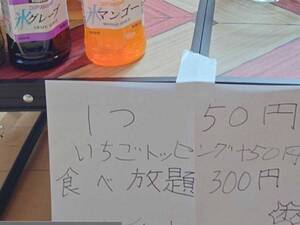 氷グレープ
氷マンゴー
1つ 50円
いちごトッピング+50円
食べ放題 300円